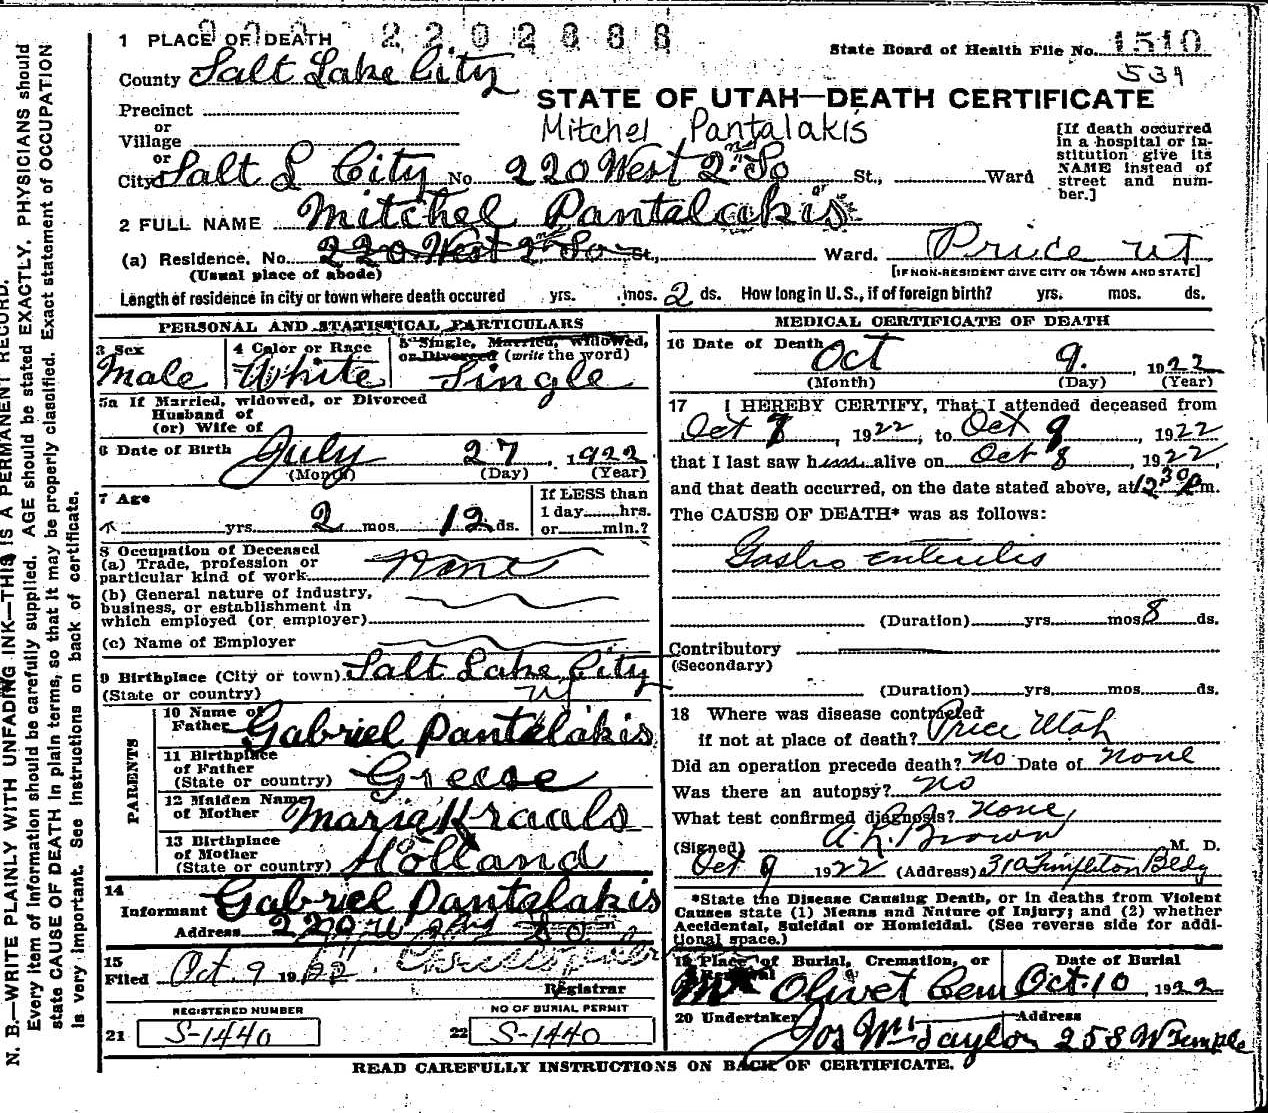 2202888
1 PLACE OF DEATH
State Board of Health File No. 1510
County Salt Lake City
539
STATE OF UTAH—DEATH CERTIFICATE
Precinct
Mitchel Pantalakis
or
Village
or
City Salt L City No. 220 West 2nd So St., Ward
[If death occurred in a hospital or institution give its NAME instead of street and number.]
2 FULL NAME Mitchel Pantalakis
(a) Residence. No. 220 West 2nd So St., Ward. Price UT
(Usual place of abode)
[IF NON-RESIDENT GIVE CITY OR TOWN AND STATE]
Length of residence in city or town where death occured yrs. mos. 2 ds. How long in U. S., if of foreign birth? yrs. mos. ds.
PERSONAL AND STATISTICAL PARTICULARS
3 Sex
Male
4 Color or Race
White
5 Single, Married, widowed,
or Divorced (write the word)
Single
5a If Married, widowed, or Divorced
Husband of
(or) Wife of
6 Date of Birth July 27, 1922
(Month) (Day) (Year)
7 Age
yrs. 2 mos. 12 ds.
If LESS than
1 day hrs.
or min.?
8 Occupation of Deceased
(a) Trade, profession or
particular kind of work None
(b) General nature of industry,
business, or establishment in
which employed (or employer)
(c) Name of Employer
9 Birthplace (City or town) Salt Lake City
(State or country) Ut
PARENTS
10 Name of
Father Gabriel Pantalakis
11 Birthplace
of Father
(State or country) Greese
12 Maiden Name
of Mother Maria Kraals
13 Birthplace
of Mother
(State or country) Holland
14
Informant Gabriel Pantalakis
Address 220 W 2nd So
15
Filed Oct. 9 1922
Registrar
REGISTERED NUMBER
21 S-1440
NO OF BURIAL PERMIT
22 S-1440
MEDICAL CERTIFICATE OF DEATH
16 Date of Death Oct 9. , 1922
(Month) (Day) (Year)
17 I HEREBY CERTIFY, That I attended deceased from
Oct 8, 1922, to Oct 9, 1922
that I last saw him alive on Oct 8, 1922,
and that death occurred, on the date stated above, at 12 30 P m.
The CAUSE OF DEATH* was as follows:
Gastro enteritis
(Duration) yrs. mos 8 ds.
Contributory
(Secondary)
(Duration) yrs. mos. ds.
18 Where was disease contracted
if not at place of death? Price Utah
Did an operation precede death? No Date of None
Was there an autopsy? No
What test confirmed diagnosis? None
(Signed) A. K. Brown M. D.
Oct 9 1922 (Address) 310 Templeton Bldg
*State the Disease Causing Death, or in deaths from Violent
Causes state (1) Means and Nature of Injury; and (2) whether
Accidental, Suicidal or Homicidal. (See reverse side for addi-
tional space.)
19 Place of Burial, Cremation, or
Removal
Mt Olivet Cem
Date of Burial
Oct. 10, 1922
20 Undertaker
Jos Wm Taylor
Address
258 W Temple
READ CAREFULLY INSTRUCTIONS ON BACK OF CERTIFICATE.
N. B.—WRITE PLAINLY WITH UNFADING INK—THIS IS A PERMANENT RECORD.
Every item of information should be carefully supplied. AGE should be stated EXACTLY. PHYSICIANS should
state CAUSE OF DEATH in plain terms, so that it may be properly classified. Exact statement of OCCUPATION
is very important. See instructions on back of certificate.